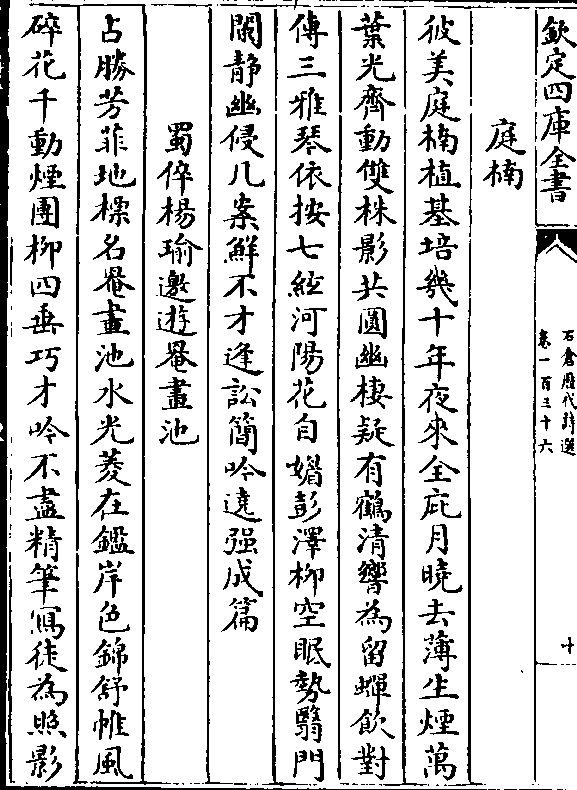 欽定四庫全書
石倉歷代詩選
卷一百三十六
十
庭楠
彼美庭楠植基培幾十年夜來全庇月曉去薄生煙萬
葉光齊動雙株影共圓幽棲疑有鶴清響為留蟬飲對
傳三雅琴依按七絃河陽花自媚彭澤柳空眠勢翳門
闌静幽侵几案鮮不才逢訟簡吟遶强成篇
蜀倅楊瑜邀遊罨畫池
占勝芳菲地標名罨畫池水光菱在鑑岸色錦舒帷風
碎花千動煙團柳四垂巧才吟不盡精筆寫徒為照影